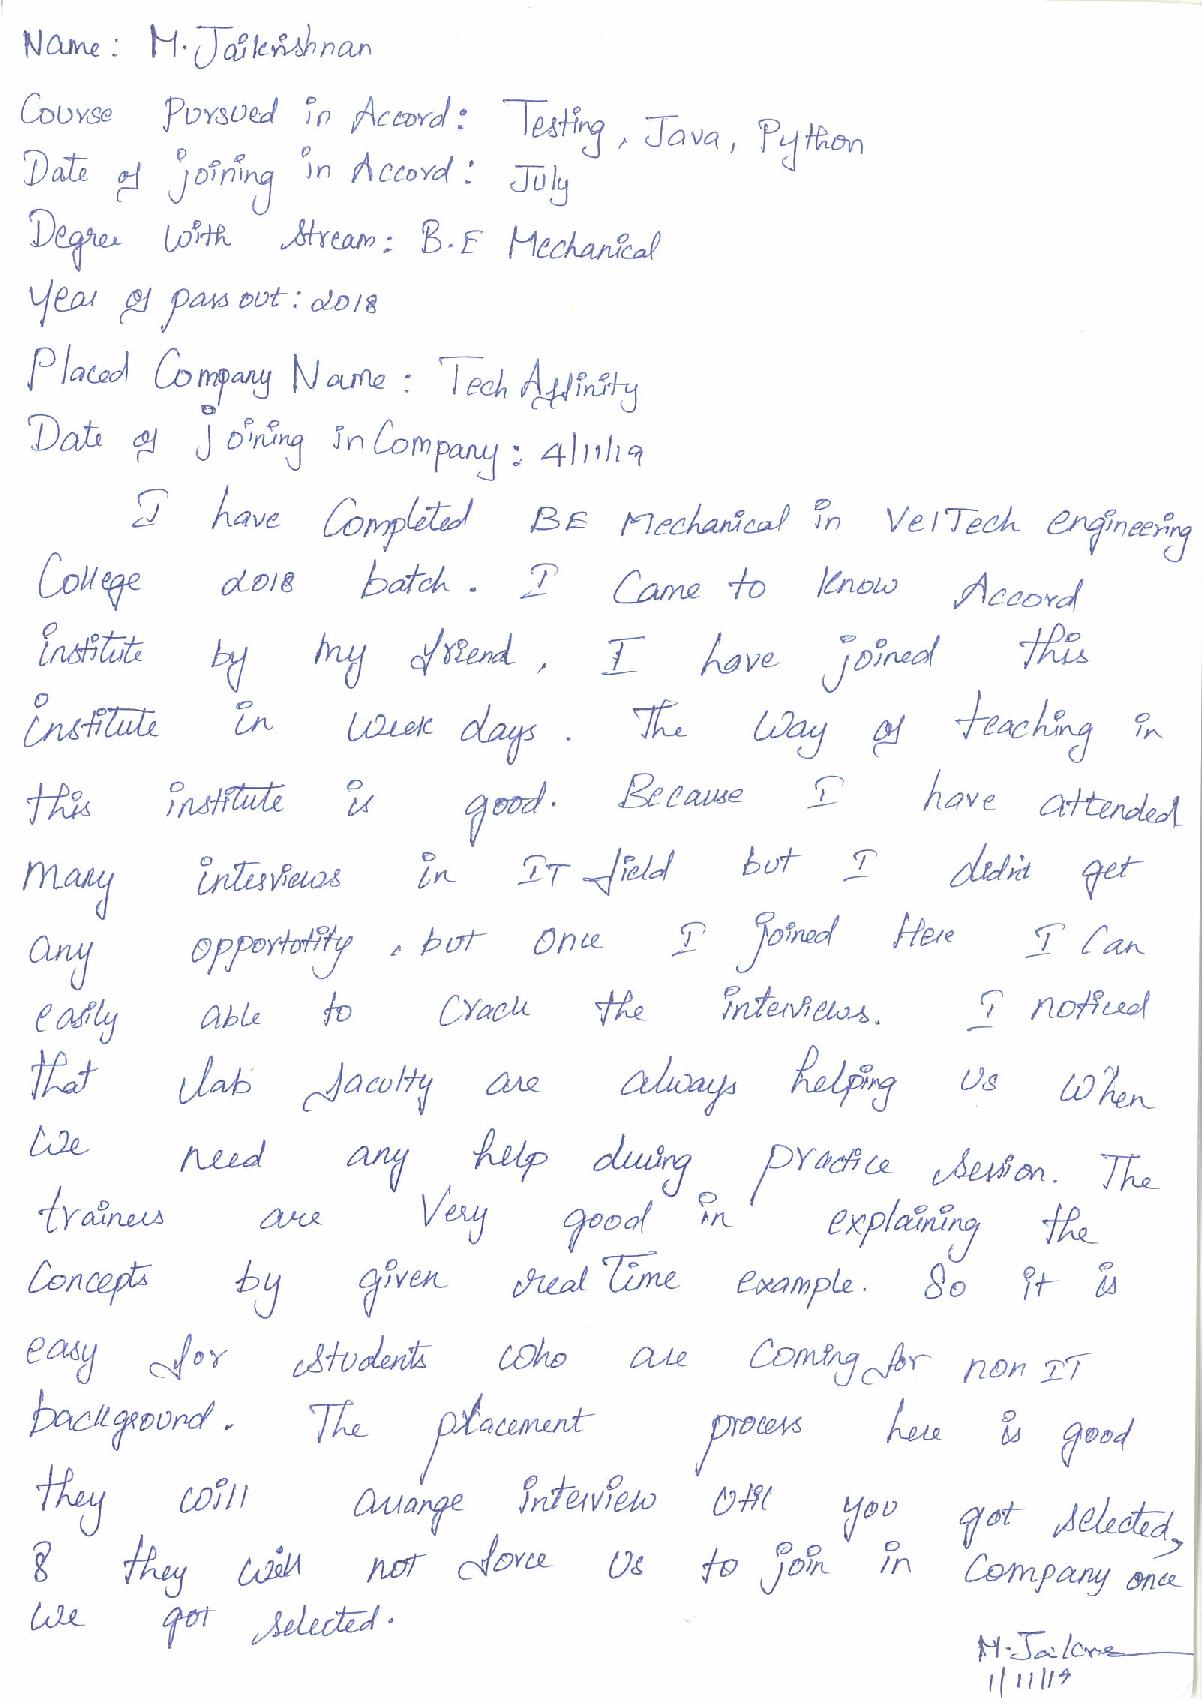 Name: M. Jaikrishnan
Course Pursued in Accord: Testing, Java, Python
Date of joining in Accord: July
Degree with Stream: B.E Mechanical
Year of pass out: 2018
Placed Company Name: Tech Affinity
Date of joining in Company: 4/11/19
I have Completed BE Mechanical in VelTech engineering
College 2018 batch. I Came to know Accord
institute by my friend, I have joined this
institute in week days. The way of teaching in
this institute is good. Because I have attended
many interviews in IT field but I didn't get
any opportotity, but once I joined Here I Can
easily able to crack the interviews. I noticed
that lab faculty are always helping us when
we need any help during practice session. The
trainers are Very good in explaining the
Concepts by given real time example. So it is
easy for students who are coming for non IT
background. The placement process here is good
they will arrange interview util you got selected,
& they will not force us to join in Company once
we got selected.
1/11/19